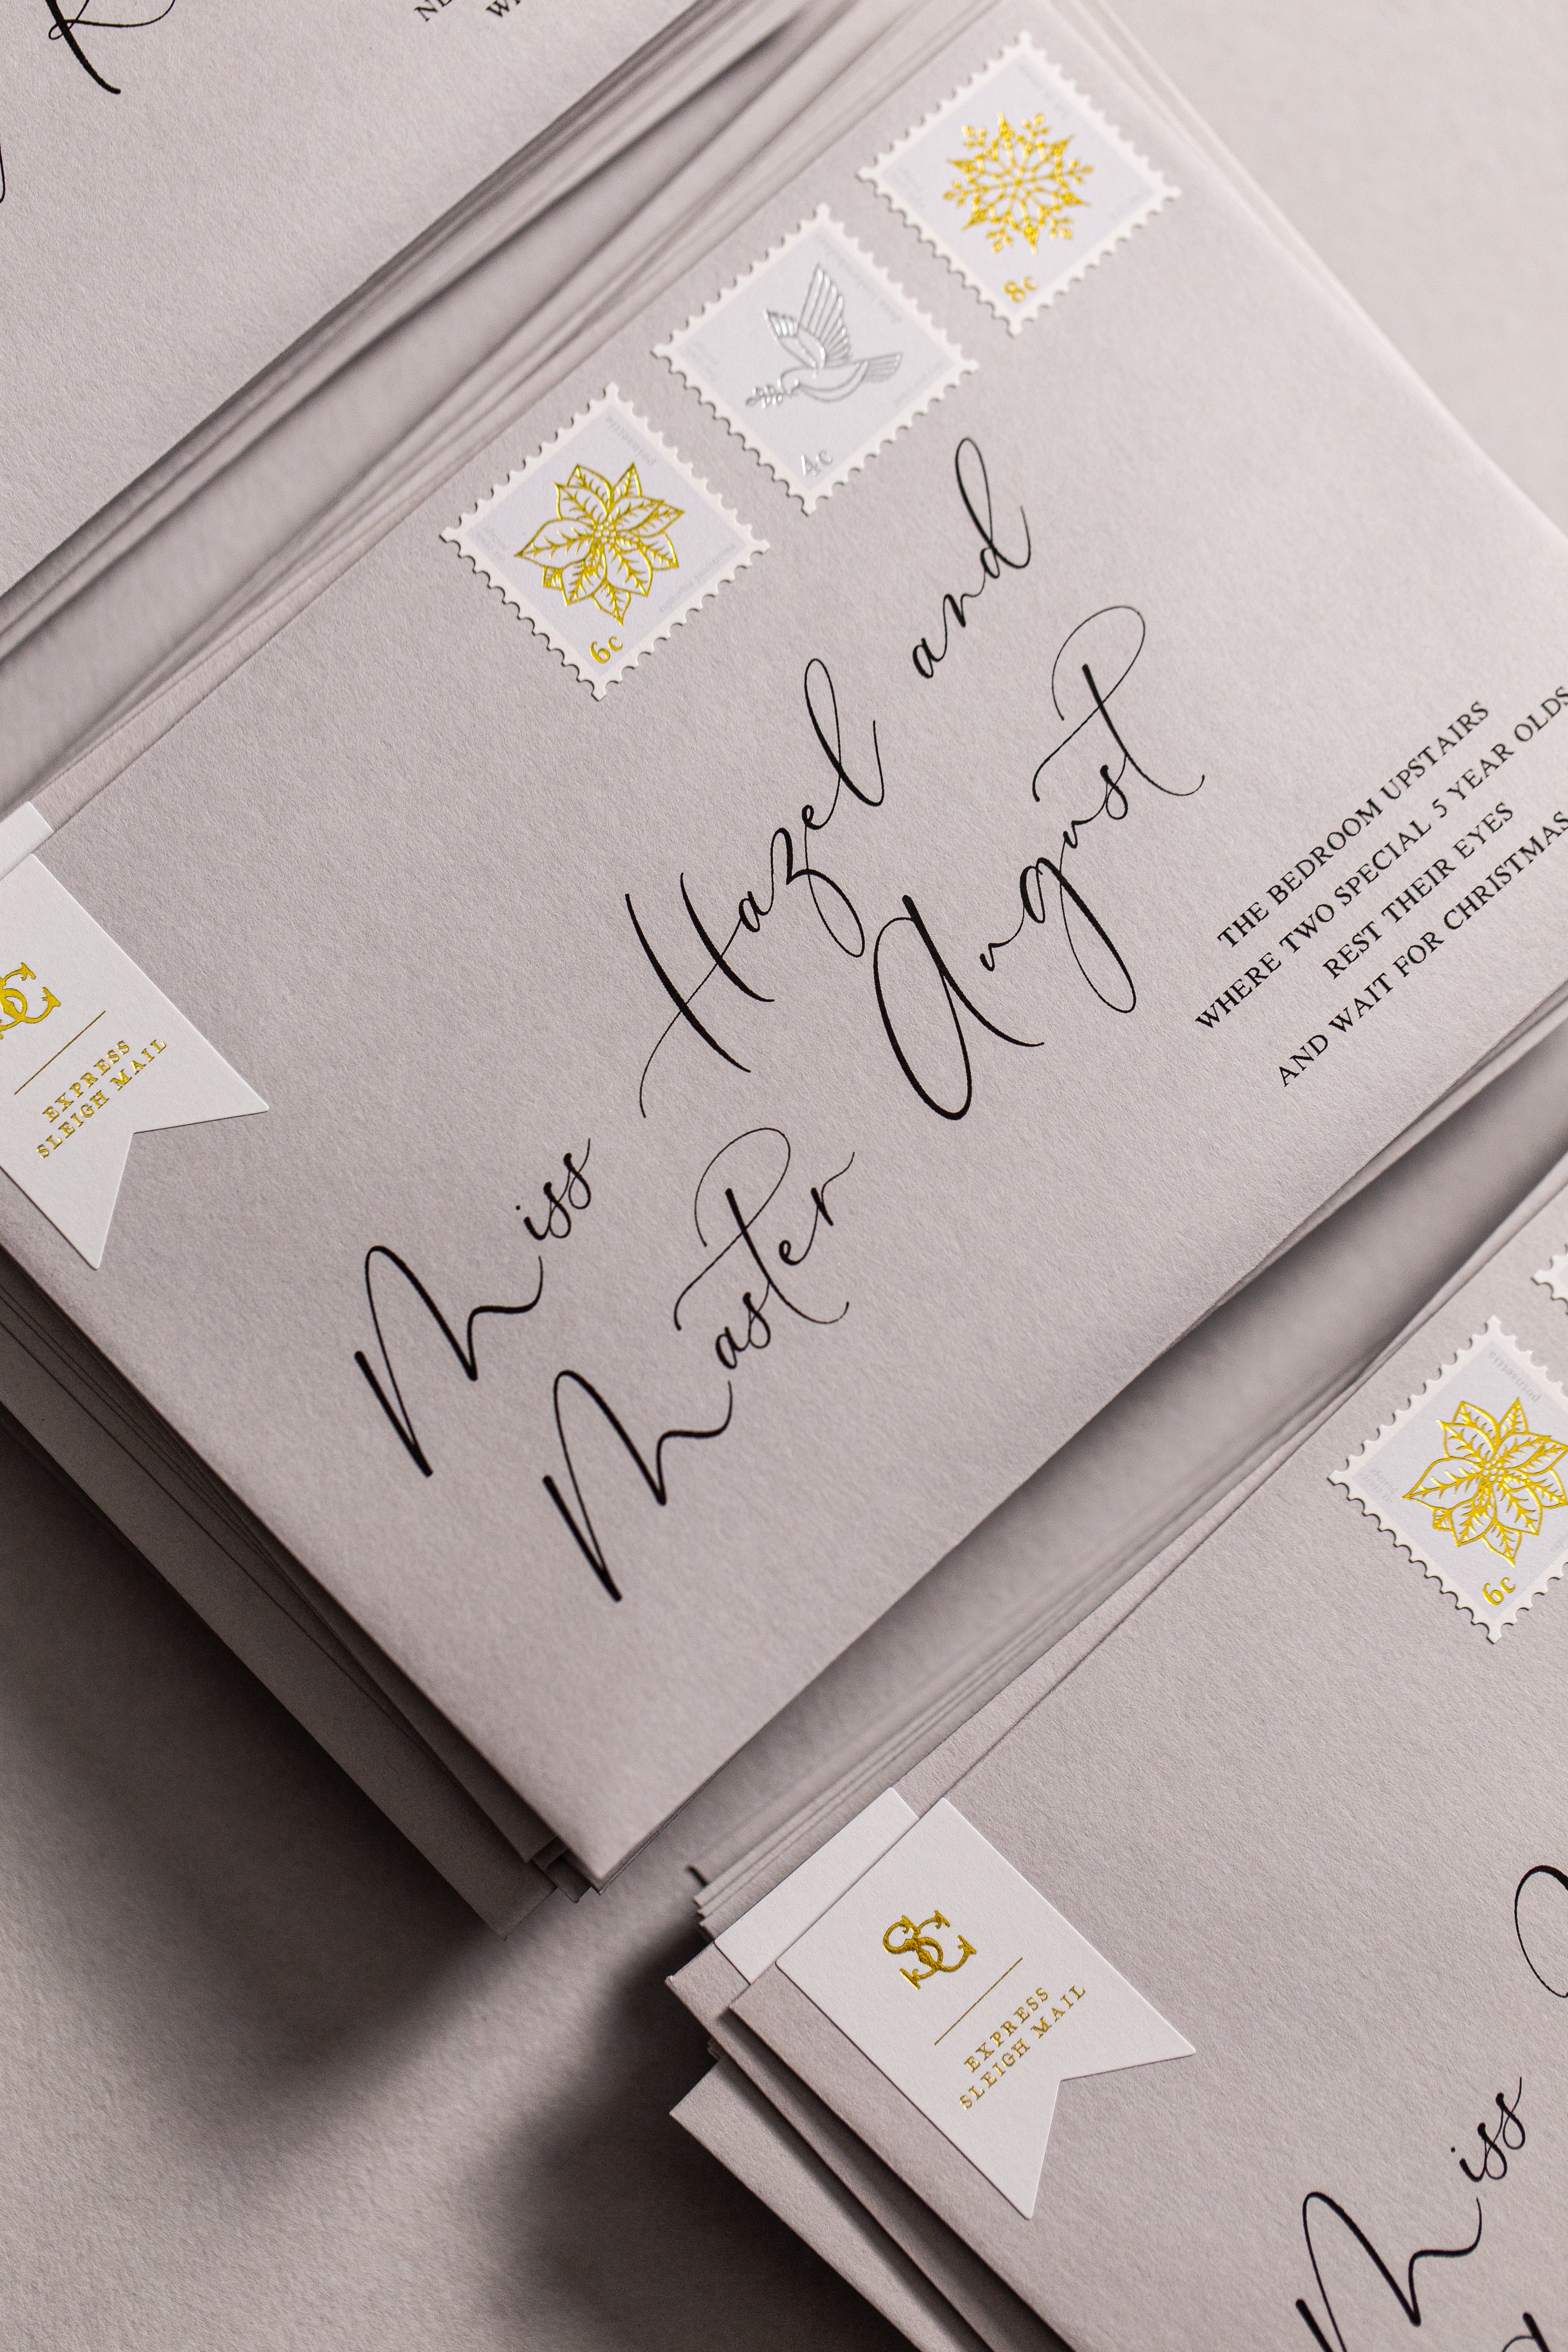 8c
4c
6c
Miss Hazel and
Master August
THE BEDROOM UPSTAIRS
WHERE TWO SPECIAL 5 YEAR OLDS
REST THEIR EYES
AND WAIT FOR CHRISTMAS
SC
EXPRESS
SLEIGH MAIL
poinsettia
6c
SC
EXPRESS
SLEIGH MAIL
Miss